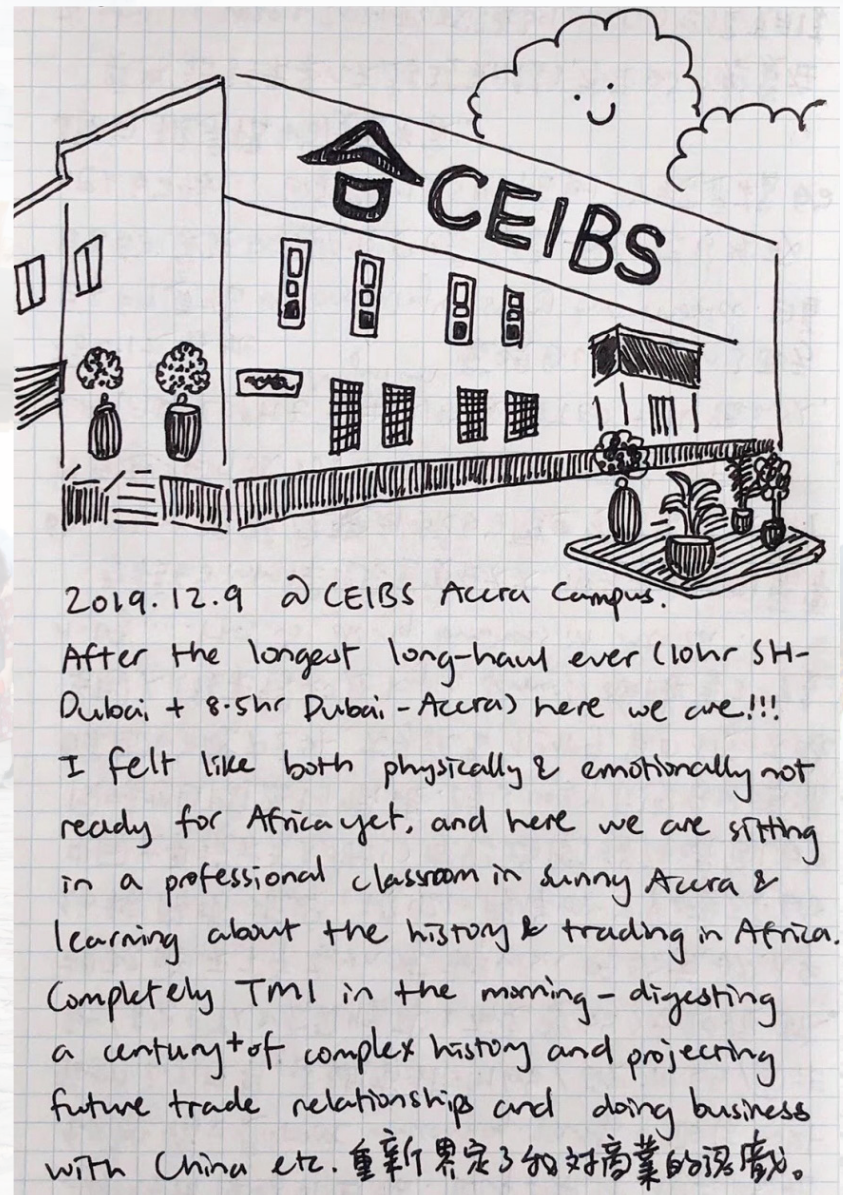 CEIBS
2019.12.9 @ CEIBS Accra Campus.
After the longest long-haul ever (10hr SH-
Dubai + 8.5hr Dubai-Accra) here we are!!!
I felt like both physically & emotionally not
ready for Africa yet, and here we are sitting
in a professional classroom in sunny Accra &
learning about the history & trading in Africa.
Completely TMI in the morning - digesting
a century+ of complex history and projecting
future trade relationships and doing business
with China etc. 重新界定了我对商業的認識。